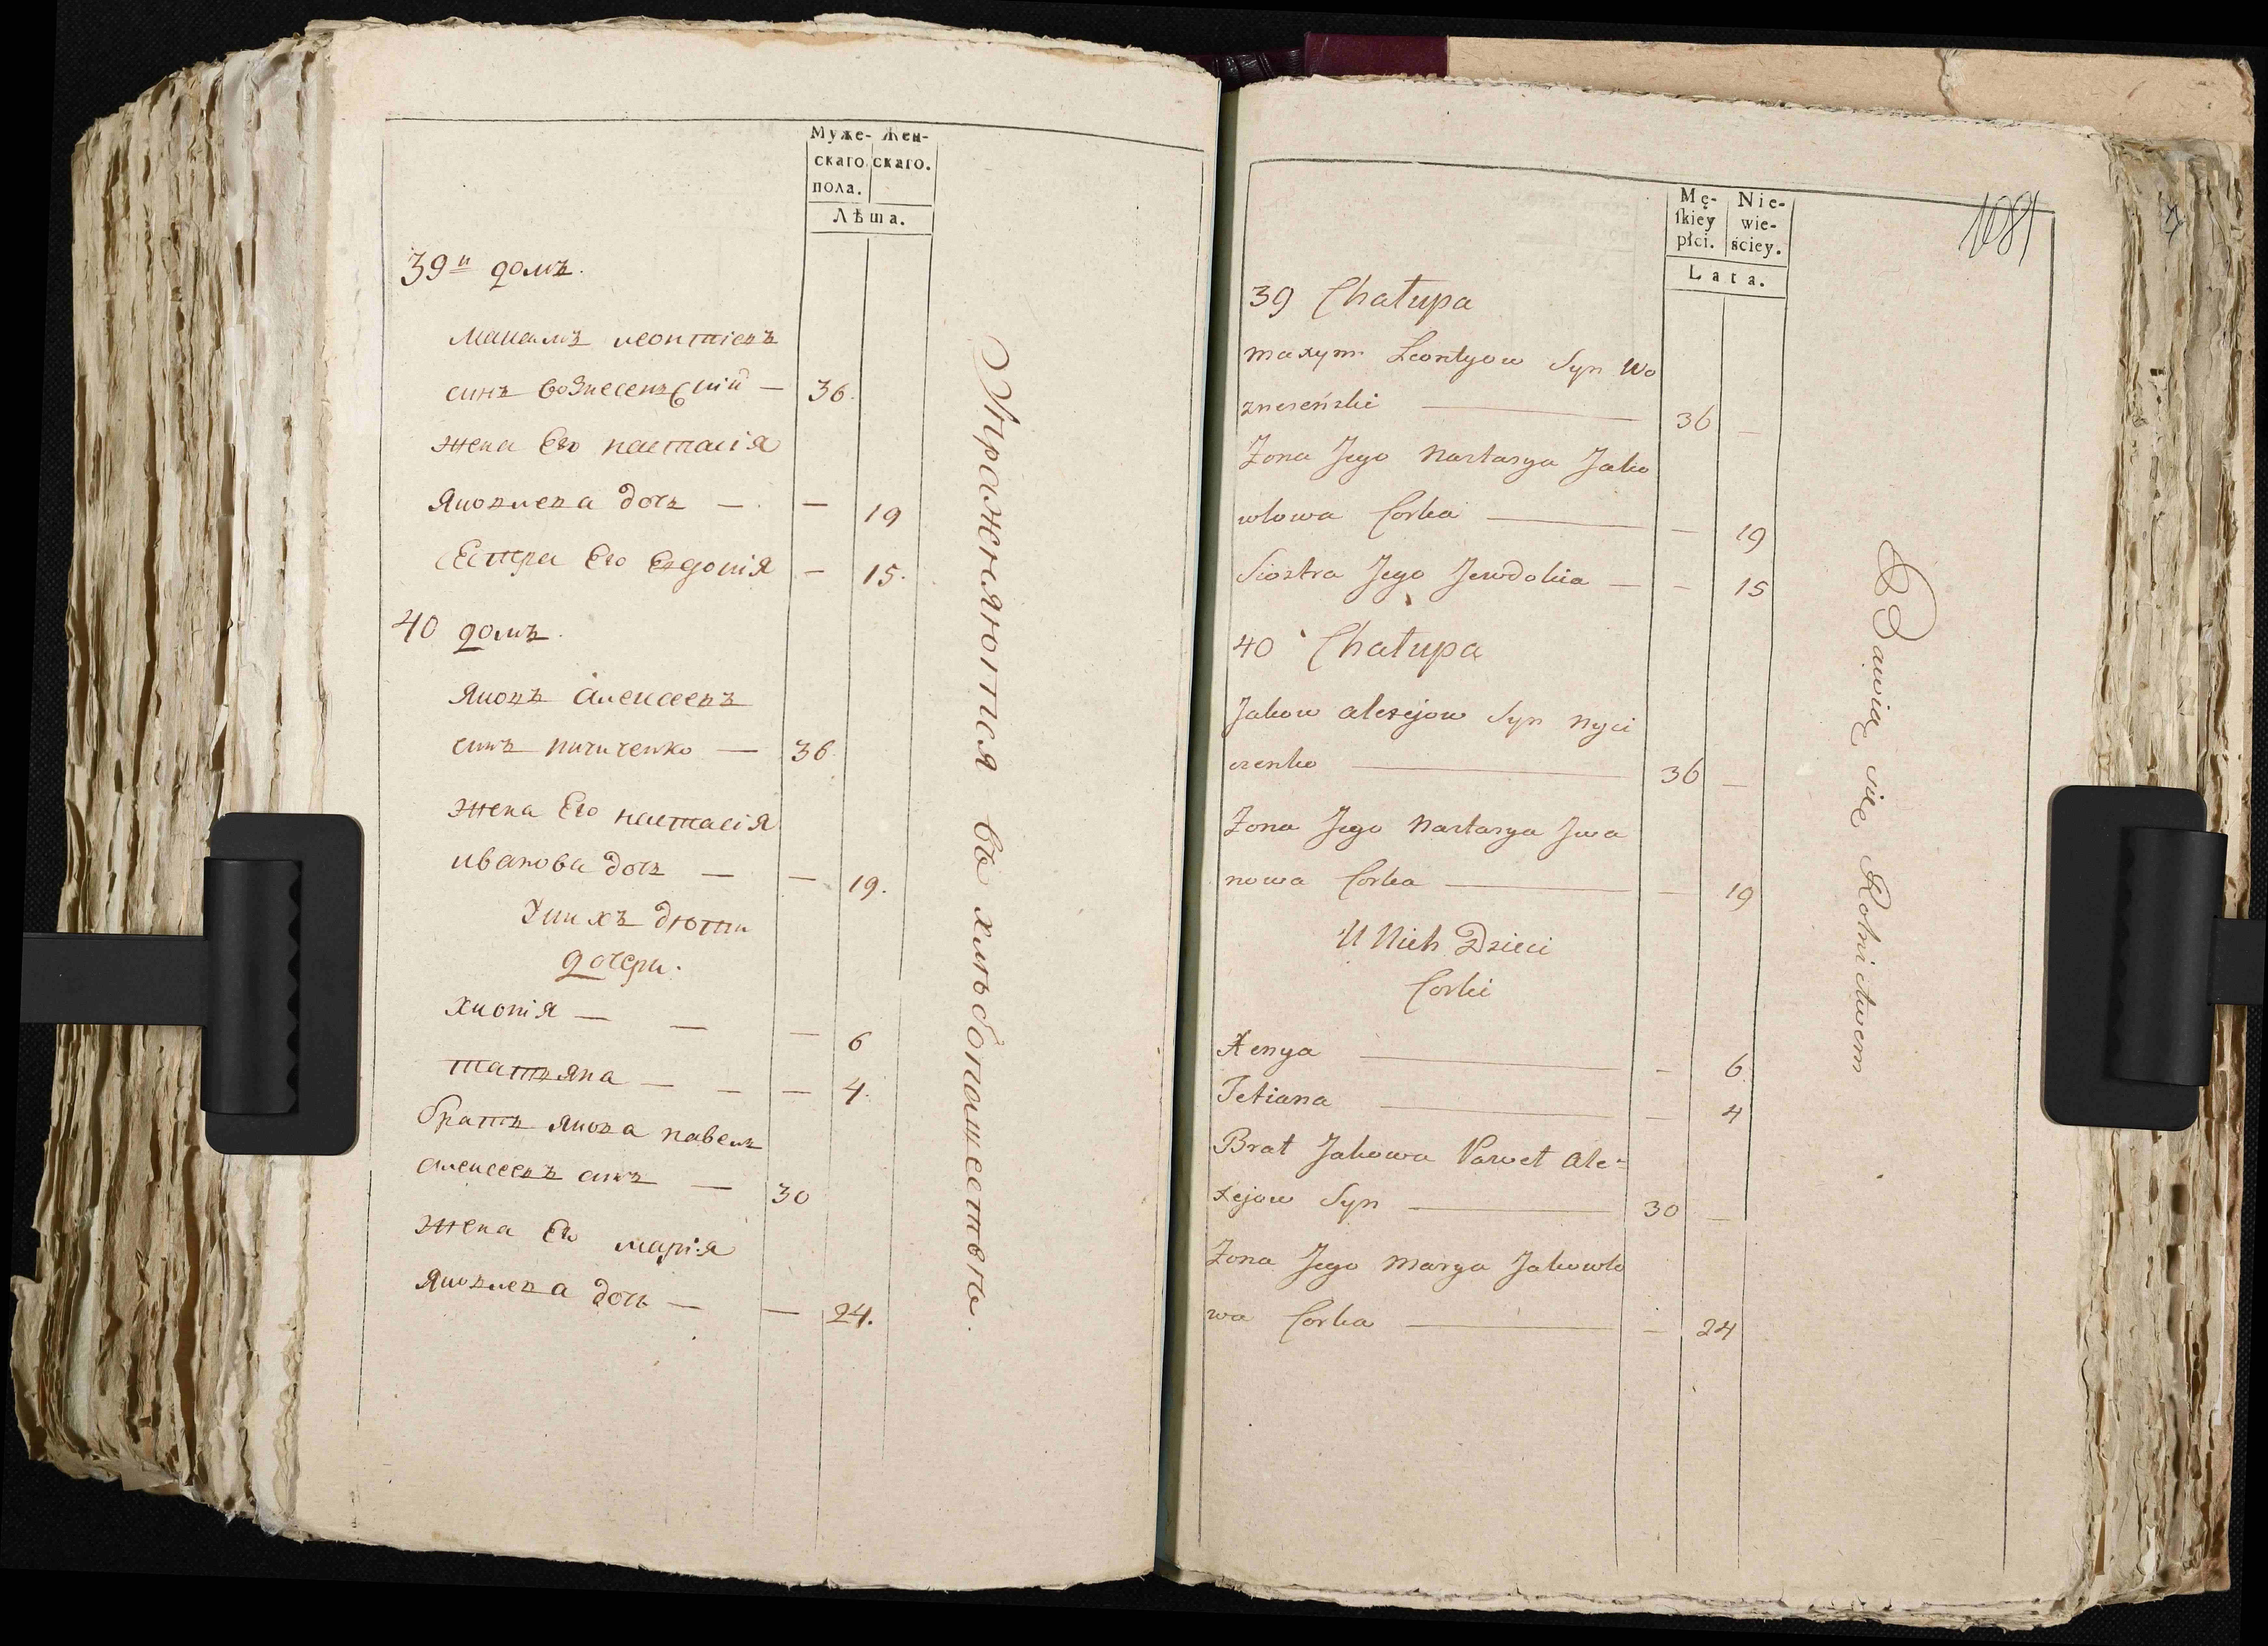 Муже- Жен-
скаго скаго.
пола.
Лѣта.
39й домъ.
Максимъ леонтіевъ
синъ вознесенъский — 36.
жена Его настасія
Яковлева дочъ — — 19
Сестра Его Евдокія — 15.
40 домъ.
Яковъ алексеевъ
синъ ничиченко — 36
жена Его настасія
иванова дочъ — — 19.
У нихъ дѣти
дочери.
хионія — — — 6
татъяна — — — 4.
братъ якова павелъ
алексеевъ синъ — 30
жена Его марія
Яковлева дочъ — — 24.
Упражняются въ хлѣбопашествѣ.
1081
Mę- Nie-
skiey wie-
płci. ściey.
Lata.
39 Chałupa
maxym Leontyow Syn Wo
zneseński — 36 —
Zona Jego Nastasya Jako
wlowa Corka — — 19
Siostra Jego Jewdokia — — 15
40 Chałupa
Jakow alexejow Syn Nyci
czenko — 36 —
Zona Jego Nastasya Jwa
nowa Corka — — 19
U Nich Dzieci
Corki
Xenya — — 6
Tetiana — — 4
Brat Jakowa Paweł Ale-
xejow Syn — 30 —
Zona Jego Marya Jakowlo
wa Corka — — 24
Bawią się Rolnictwem